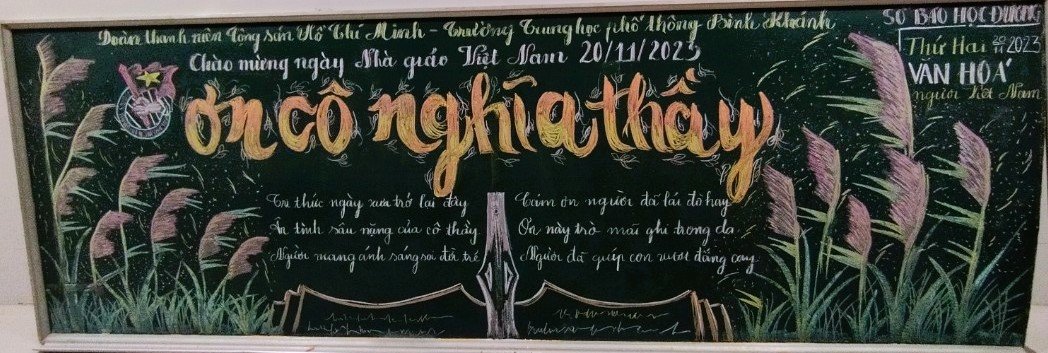 Đoàn thanh niên Cộng sản Hồ Chí Minh - Trường Trung học phổ thông Bình Khánh
Chào mừng ngày Nhà giáo Việt Nam 20/11/2023
SỔ BÁO HỌC ĐƯỜNG
Thứ Hai 20/11 2023
VĂN HOÁ
người Việt Nam
ơn cô nghĩa thầy
Tri thức ngày xưa trở lại đây
Ân tình sâu nặng của cô thầy
Người mang ánh sáng soi đời trẻ
Cảm ơn người đã lái đò hay
Ơn này trò mãi ghi trong dạ
Người đã giúp con vượt đắng cay